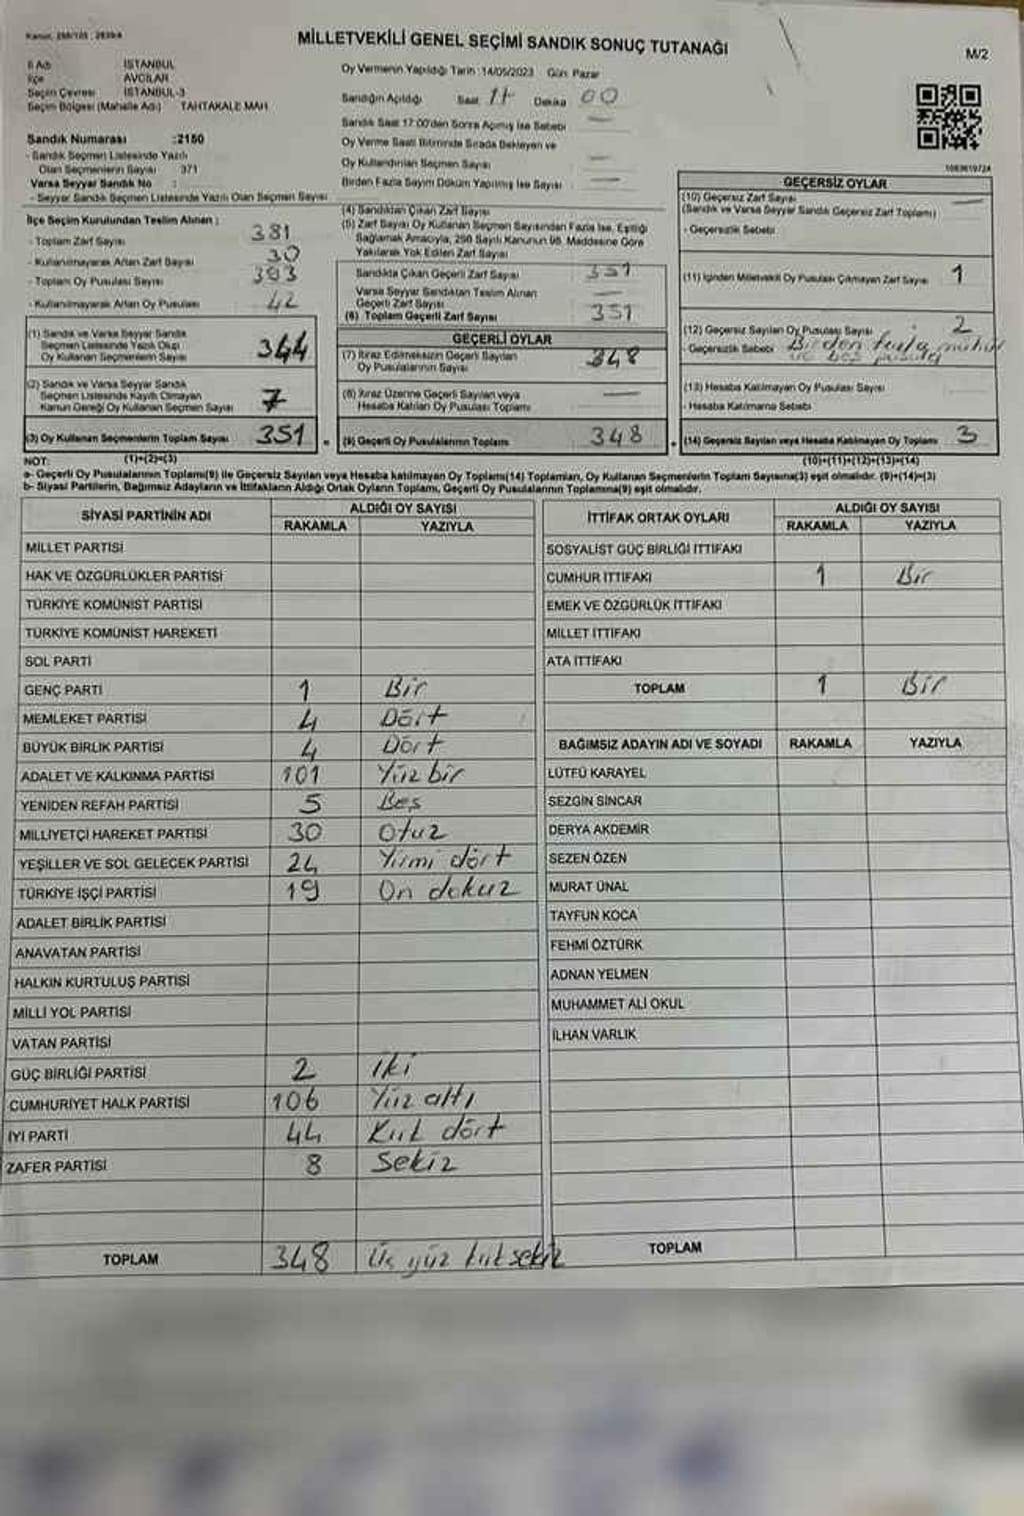 MİLLETVEKİLİ GENEL SEÇİMİ SANDIK SONUÇ TUTANAĞI
M/2
İl Adı İSTANBUL
İlçe AVCILAR
Seçim Çevresi İSTANBUL-3
Seçim Bölgesi (Mahalle Adı) TAHTAKALE MAH
Oy Vermenin Yapıldığı Tarih : 14/05/2023 Gün: Pazar
Sandığın Açıldığı Saat 17 Dakika 00
Sandık Saat 17:00'den Sonra Açılmış İse Sebebi —
Oy Verme Saati Bitiminde Sırada Bekleyen ve
Oy Kullandırılan Seçmen Sayısı —
Birden Fazla Sayım Döküm Yapılmış İse Sayısı —
Sandık Numarası :2150
- Sandık Seçmen Listesinde Yazılı
Olan Seçmenlerin Sayısı 371
Varsa Seyyar Sandık No :
- Seyyar Sandık Seçmen Listesinde Yazılı Olan Seçmen Sayısı
İlçe Seçim Kurulundan Teslim Alınan :
- Toplam Zarf Sayısı 381
- Kullanılmayarak Artan Zarf Sayısı 30
- Toplam Oy Pusulası Sayısı 393
- Kullanılmayarak Artan Oy Pusulası 42
(1) Sandık ve Varsa Seyyar Sandık
Seçmen Listesinde Yazılı Olup
Oy Kullanan Seçmenlerin Sayısı 344
(2) Sandık ve Varsa Seyyar Sandık
Seçmen Listesinde Kayıtlı Olmayan
Kanun Gereği Oy Kullanan Seçmen Sayısı 7
(3) Oy Kullanan Seçmenlerin Toplam Sayısı 351
(1)+(2)=(3)
(4) Sandıktan Çıkan Zarf Sayısı
(5) Zarf Sayısı Oy Kullanan Seçmen Sayısından Fazla İse, Eşitliği
Sağlamak Amacıyla, 298 Sayılı Kanunun 98. Maddesine Göre
Yakılarak Yok Edilen Zarf Sayısı
Sandıkta Çıkan Geçerli Zarf Sayısı 351
Varsa Seyyar Sandıktan Teslim Alınan
Geçerli Zarf Sayısı —
(6) Toplam Geçerli Zarf Sayısı 351
GEÇERLİ OYLAR
(7) İtiraz Edilmeksizin Geçerli Sayılan
Oy Pusulalarının Sayısı 348
(8) İtiraz Üzerine Geçerli Sayılan veya
Hesaba Katılan Oy Pusulası Toplamı —
(9) Geçerli Oy Pusulalarının Toplamı 348
GEÇERSİZ OYLAR
(10) Geçersiz Zarf Sayısı —
(Sandık ve Varsa Seyyar Sandık Geçersiz Zarf Toplamı)
- Geçersizlik Sebebi
(11) İçinden Milletvekili Oy Pusulası Çıkmayan Zarf Sayısı 1
(12) Geçersiz Sayılan Oy Pusulası Sayısı 2
- Geçersizlik Sebebi Birden fazla mühür
ve boş pusula
(13) Hesaba Katılmayan Oy Pusulası Sayısı
- Hesaba Katılmama Sebebi
(14) Geçersiz Sayılan veya Hesaba Katılmayan Oy Toplamı 3
(10)+(11)+(12)+(13)=(14)
NOT:
a- Geçerli Oy Pusulalarının Toplamı(9) ile Geçersiz Sayılan veya Hesaba katılmayan Oy Toplamı(14) Toplamları, Oy Kullanan Seçmenlerin Toplam Sayısına(3) eşit olmalıdır. (9)+(14)=(3)
b- Siyasi Partilerin, Bağımsız Adayların ve İttifakların Aldığı Ortak Oyların Toplamı, Geçerli Oy Pusulalarının Toplamına(9) eşit olmalıdır.
SİYASİ PARTİNİN ADI ALDIĞI OY SAYISI
RAKAMLA YAZIYLA
MİLLET PARTİSİ
HAK VE ÖZGÜRLÜKLER PARTİSİ
TÜRKİYE KOMÜNİST PARTİSİ
TÜRKİYE KOMÜNİST HAREKETİ
SOL PARTİ
GENÇ PARTİ 1 Bir
MEMLEKET PARTİSİ 4 Dört
BÜYÜK BİRLİK PARTİSİ 4 Dört
ADALET VE KALKINMA PARTİSİ 101 Yüz bir
YENİDEN REFAH PARTİSİ 5 Beş
MİLLİYETÇİ HAREKET PARTİSİ 30 Otuz
YEŞİLLER VE SOL GELECEK PARTİSİ 24 Yirmi dört
TÜRKİYE İŞÇİ PARTİSİ 19 On dokuz
ADALET BİRLİK PARTİSİ
ANAVATAN PARTİSİ
HALKIN KURTULUŞ PARTİSİ
MİLLİ YOL PARTİSİ
VATAN PARTİSİ
GÜÇ BİRLİĞİ PARTİSİ 2 İki
CUMHURİYET HALK PARTİSİ 106 Yüz altı
İYİ PARTİ 44 Kırk dört
ZAFER PARTİSİ 8 Sekiz
TOPLAM 348 Üç yüz kırk sekiz
İTTİFAK ORTAK OYLARI ALDIĞI OY SAYISI
RAKAMLA YAZIYLA
SOSYALİST GÜÇ BİRLİĞİ İTTİFAKI
CUMHUR İTTİFAKI 1 Bir
EMEK VE ÖZGÜRLÜK İTTİFAKI
MİLLET İTTİFAKI
ATA İTTİFAKI
TOPLAM 1 Bir
BAĞIMSIZ ADAYIN ADI VE SOYADI RAKAMLA YAZIYLA
LÜTFÜ KARAYEL
SEZGİN SİNCAR
DERYA AKDEMİR
SEZEN ÖZEN
MURAT ÜNAL
TAYFUN KOCA
FEHMİ ÖZTÜRK
ADNAN YELMEN
MUHAMMET ALİ OKUL
İLHAN VARLIK
TOPLAM